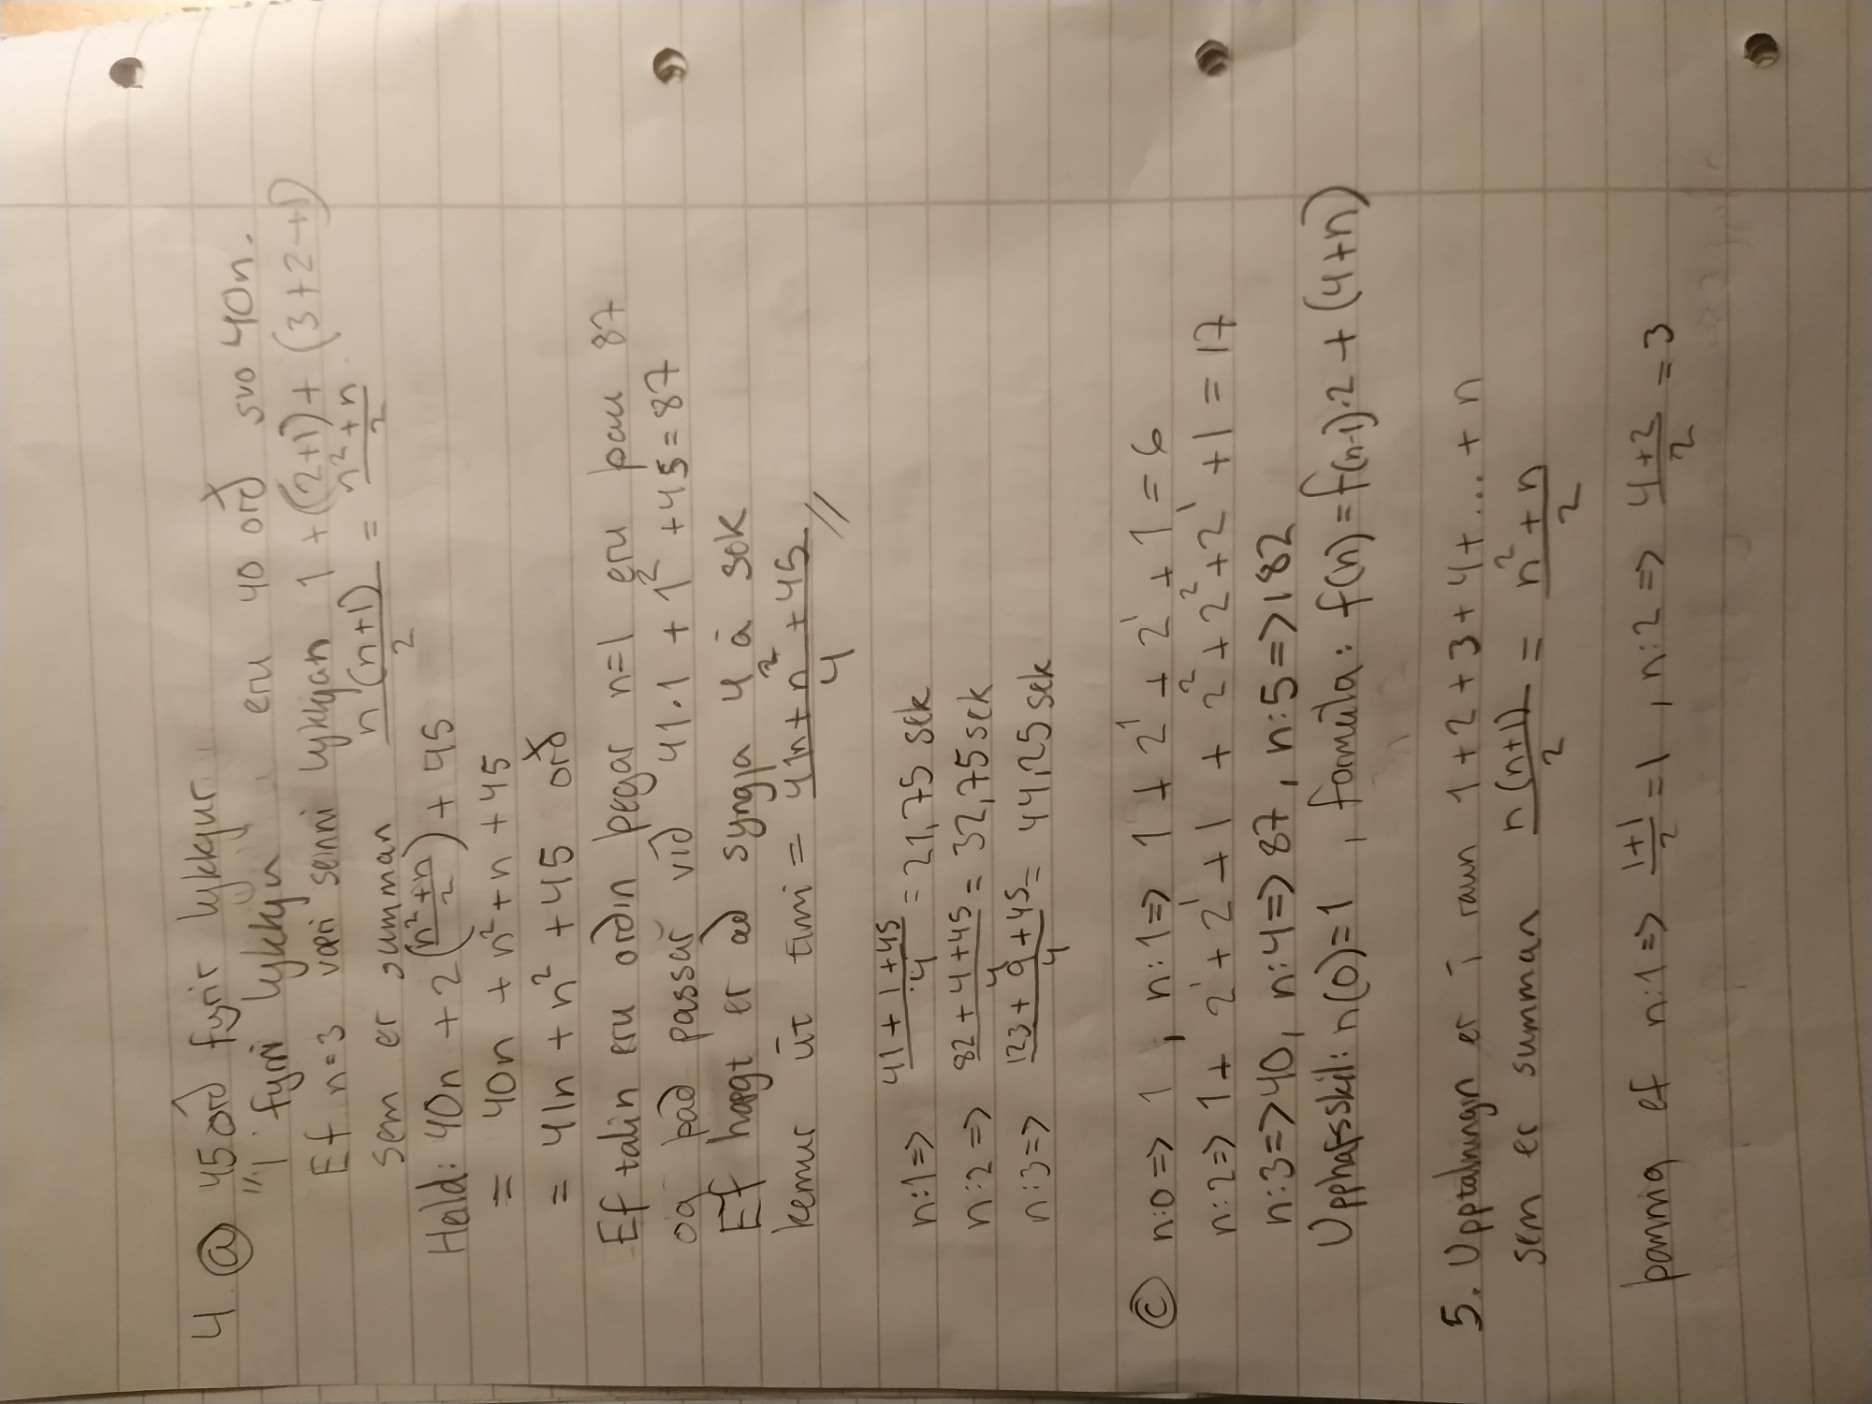 4. (a) 45 orð fyrir lykkjur.
"Í fyrri lykkju" eru 40 orð svo 40n.
Ef n=3 væri seinni lykkjan 1 + (2+1) + (3+2+1)
sem er summan n(n+1)/2 = n²+n/2.
Heild: 40n + 2(n²+n/2) + 45
= 40n + n²+n + 45
= 41n + n² + 45 orð
Ef talin eru orðin þegar n=1 eru þau 87
og það passar við 41·1 + 1² + 45 = 87
Ef hægt er að syngja 4 á sek
kemur út tími = 41n + n² + 45/4 //
n:1 => 41 + 1 + 45/4 = 21,75 sek
n:2 => 82 + 4 + 45/4 = 32,75 sek
n:3 => 123 + 9 + 45/4 = 44,25 sek
(c) n:0 => 1, n:1 => 1 + 2¹ + 2¹ + 1 = 6
n:2 => 1 + 2¹ + 2¹ + 1 + 2² + 2² + 2¹ + 1 = 17
n:3 => 40, n:4 => 87, n:5 => 182
Upphafsskil: n(0)=1, formúla: f(n) = f(n-1)·2 + (4+n)
5. Upptalningin er í raun 1+2+3+4+...+n
sem er summan n(n+1)/2 = n²+n/2
þannig ef n:1 => 1+1/2 = 1, n:2 => 4+2/2 = 3